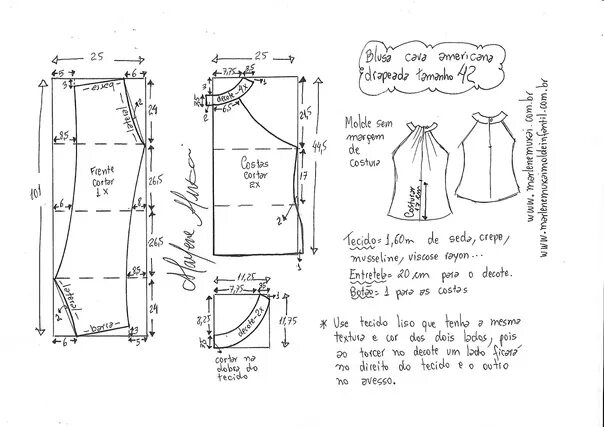 Blusa cava americana
drapeada tamanho 42
Molde sem
margem
de
costura
costurar
17 cm
www.marlenemukai.com.br
www.marlenemukaimoldeinfantil.com.br
Tecido = 1,60m de seda, crepe,
musseline, viscose rayon...
Entretela = 20 cm para o decote.
Botão = 1 para as costas
* Use tecido liso que tenha a mesma
textura e cor dos dois lados, pois
ao torcer no decote um lado ficará
no direito do tecido e o outro
no avesso.
25
5
6
3
barra
lateral
2
24
101
8,5
Frente
cortar
1x
26,5
6
8
26,5
3,5
lateral
2
24
barra
3
6
5
Marlene Mukai
25
7,75
3,5
3
1
decote - 4x
6,5
2
24,5
44,5
Costas
cortar
2x
17
2
1
11,25
7,75
3,5
1
8,25
decote - 2x
11,75
3,5
cortar na
dobra do
tecido